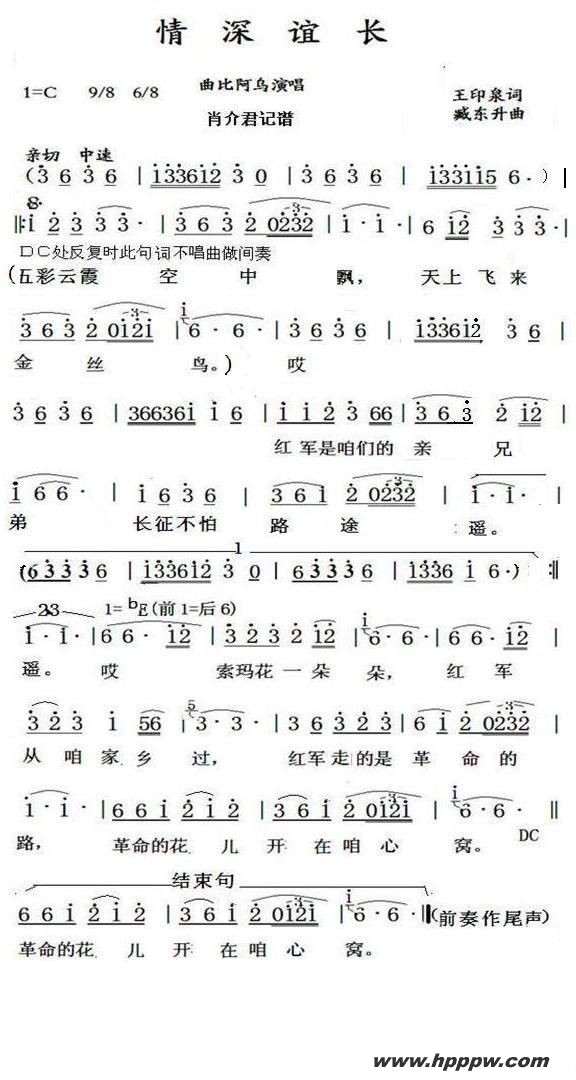 情深谊长
1=C 9/8 6/8 曲比阿乌演唱 王印泉词
肖介君记谱 臧东升曲
亲切 中速
(3 6 3 6 | 133612 3 0 | 3 6 3 6 | 133115 6·)|
‖:1 2 3 3 3· | 3 6 3 2 0232 | 1· 1· | 6 12 3 3 3· |
DC处反复时此句词不唱曲做间奏
(五彩云霞 空 中 飘, 天上飞来
3 6 3 2 0121 | 6· 6· | 3 6 3 6 | 133612 3 6 |
金 丝 鸟。) 哎
3 6 3 6 | 366361 1 6 | 1 1 2 3 66 | 3 6 3 2 12 |
红军是咱们的 亲 兄
1 6 6· | 1 6 3 6 | 3 6 1 2 0232 | 1· 1· |
弟 长征不怕 路 途 遥。
1
(6 3 3 3 6 | 133612 3 0 | 6 3 3 3 6 | 1336 1 6·) :‖
23 1=bE(前1=后6)
1· 1· | 6 6· 12 | 3 2 3 2 12 | 6· 6· | 6 6· 12 |
遥。 哎 索玛花一朵 朵, 红 军
3 2 3 1 56 | 3· 3· | 3 6 3 2 3 | 6 1 2 0232 |
从 咱 家 乡 过, 红军走的是 革 命 的
1· 1· | 6 6 1 2 1 2 | 3 6 1 2 0121 | 6· 6· ‖
路, 革命的花 儿 开 在 咱 心 窝。 DC
结束句
6 6 1 2 1 2 | 3 6 1 2 0121 | 6· 6· ‖(前奏作尾声)
革命的花 儿 开 在 咱 心 窝。
www.hpppw.com